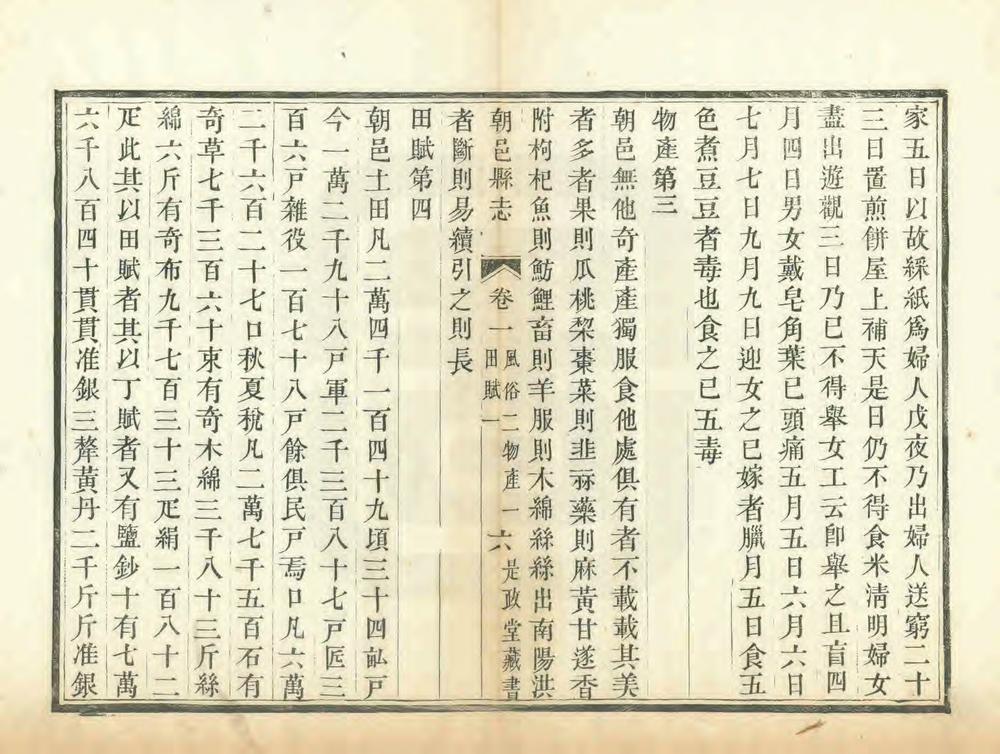 家五日以故綵紙爲婦人戊夜乃出婦人送窮二十
三日置煎餠屋上補天是日仍不得食米淸明婦女
盡出遊觀三日乃已不得舉女工云卽舉之且盲四
月四日男女戴皂角葉已頭痛五月五日六月六日
七月七日九月九日迎女之已嫁者臘月五日食五
色煮豆豆者毒也食之已五毒
物產第三
朝邑無他奇產產獨服食他處俱有者不載載其美
者多者果則瓜桃棃棗菜則韭藥則麻黃甘遂香
附枸杞魚則魴鯉畜則羊服則木綿絲絲出南陽洪
朝邑縣志 卷一 風俗二 物產一 田賦一 六 是政堂藏書
者斷則易續引之則長
田賦第四
朝邑土田凡二萬四千一百四十九頃三十四畝戸
今一萬二千九十八戸軍二千三百八十七戸匠三
百六戸雜役一百七十八戸餘俱民戸焉口凡六萬
二千六百二十七口秋夏稅凡二萬七千五百石有
奇草七千三百六十束有奇木綿三千八十三斤絲
綿六斤有奇布九千七百三十三疋絹一百八十二
疋此其以田賦者其以丁賦者又有鹽鈔十有七萬
六千八百四十貫貫准銀三釐黃丹二千斤斤准銀